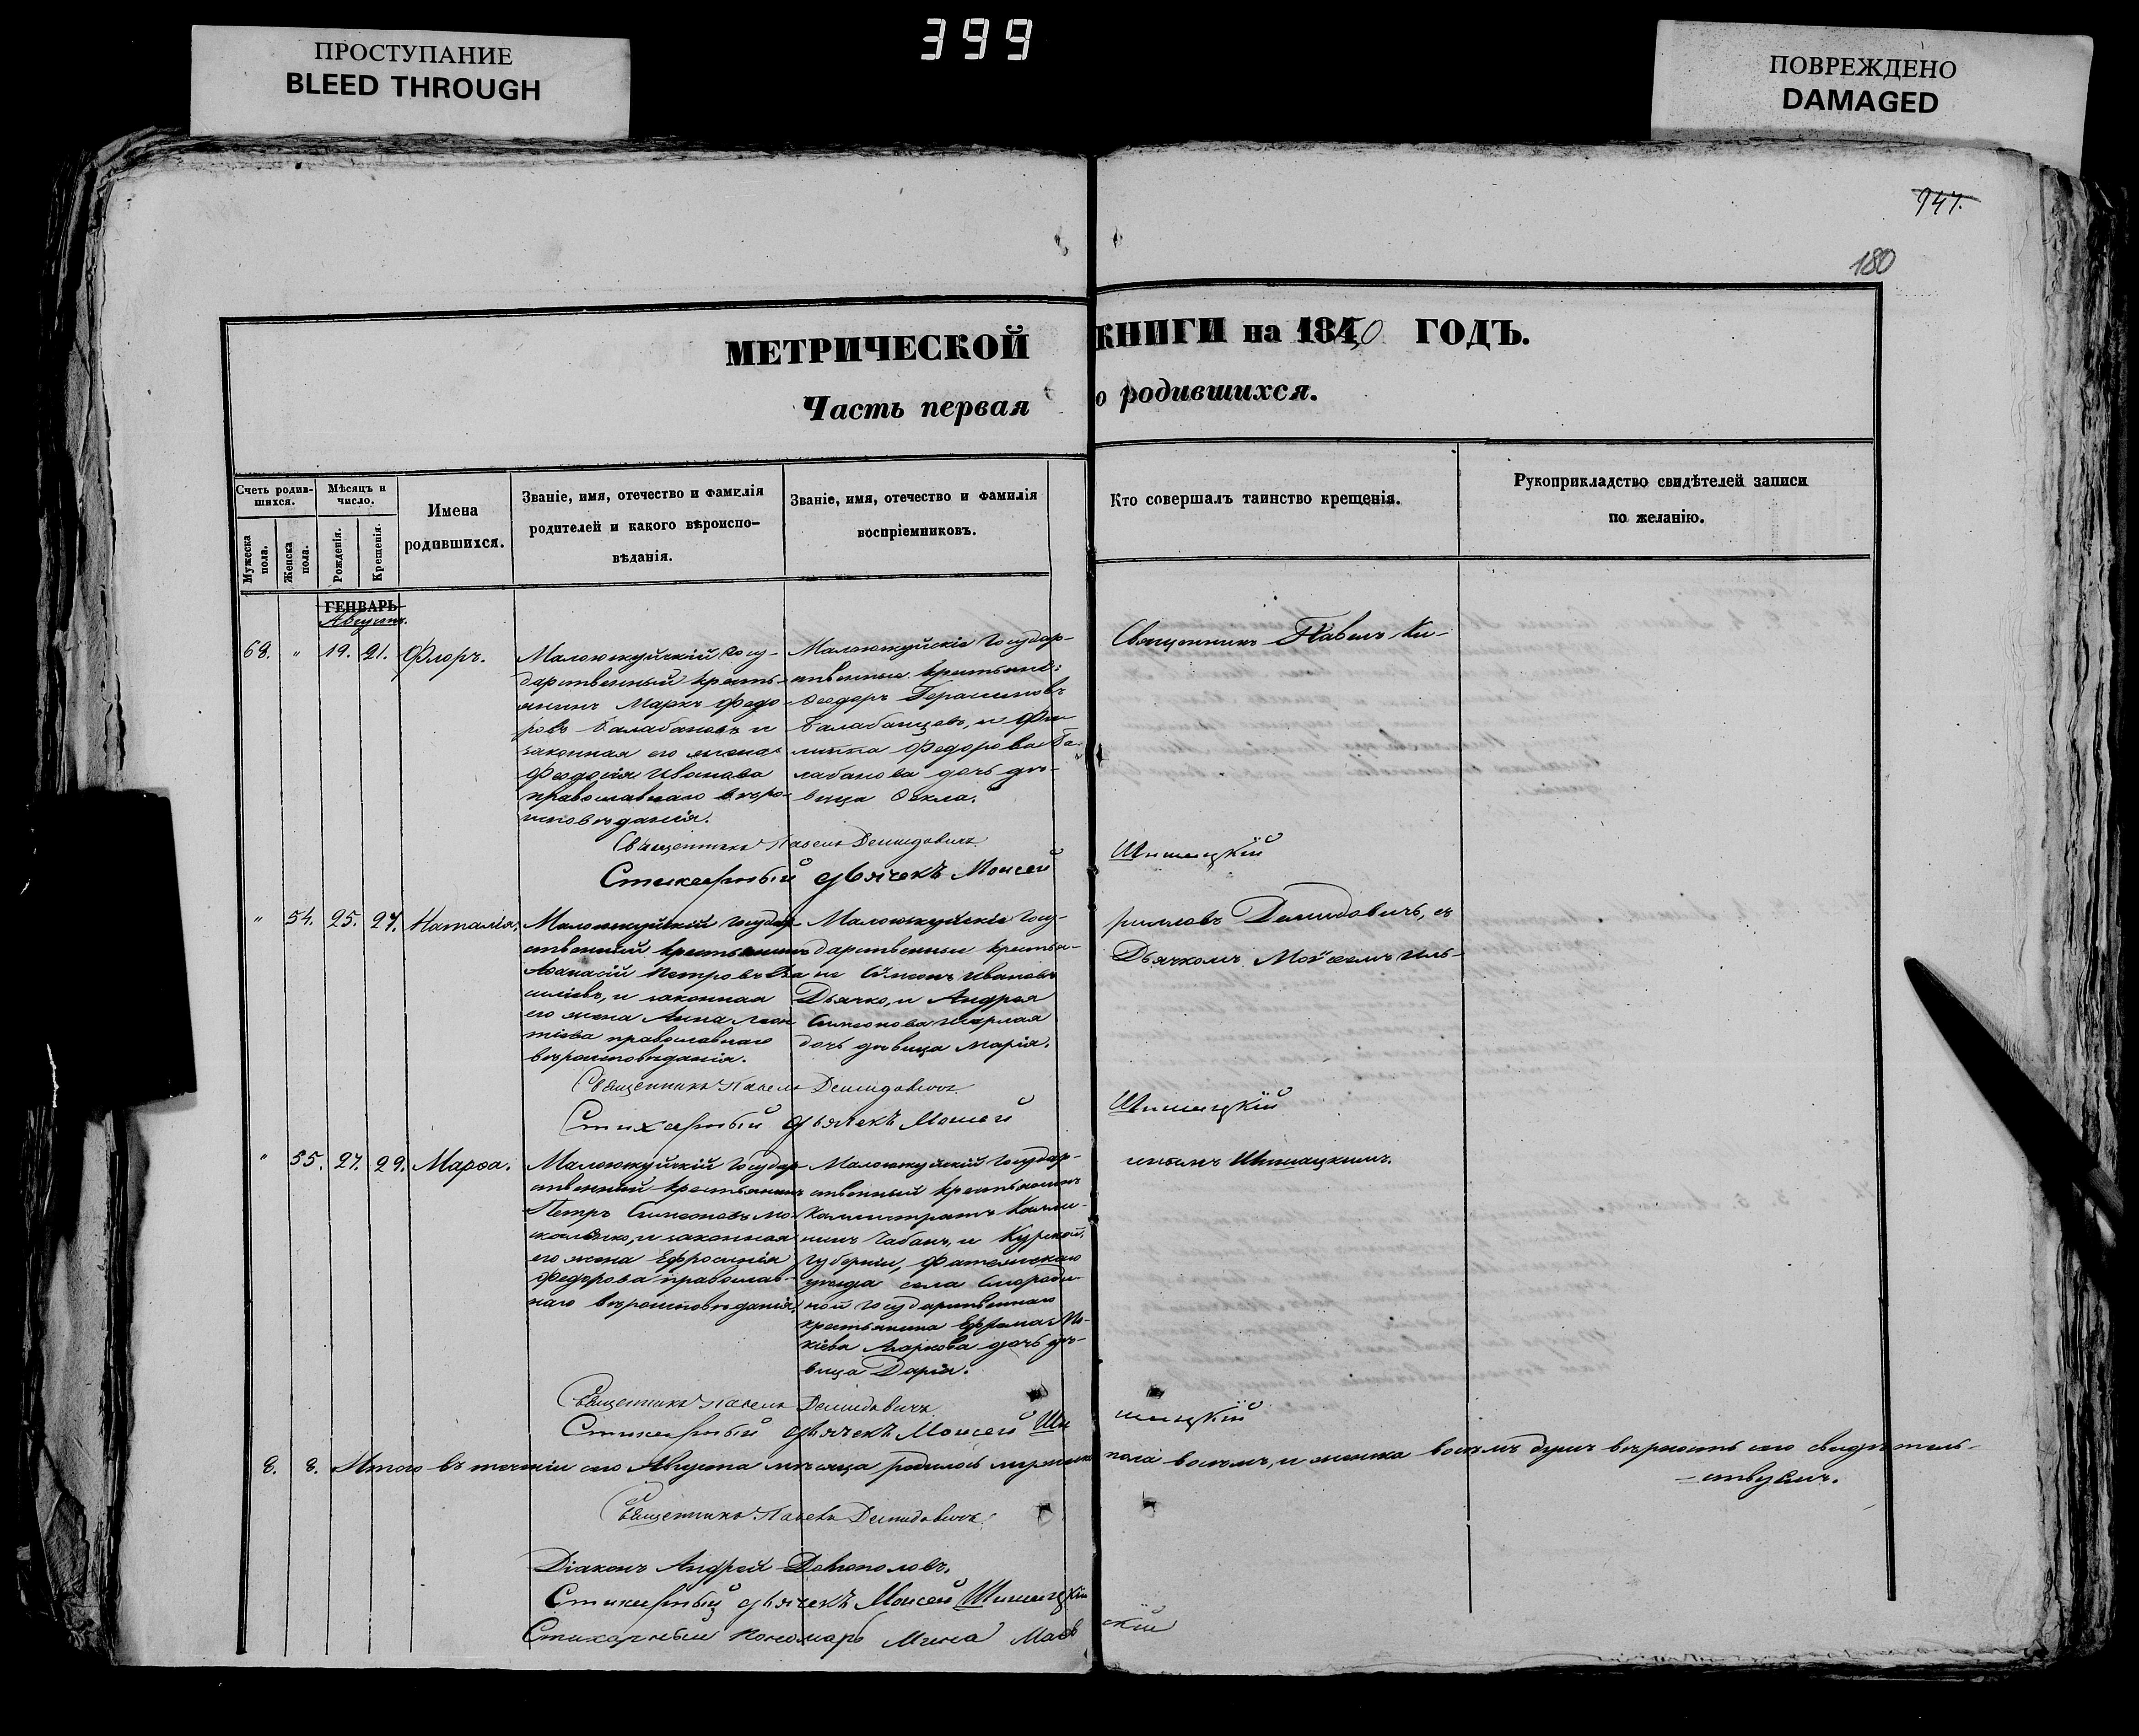 399
ПРОСТУПАНИЕ
BLEED THROUGH
ПОВРЕЖДЕНО
DAMAGED
947.
180
МЕТРИЧЕСКОЙ КНИГИ на 1850 ГОДЪ.
Часть первая о родившихся.
Счетъ родив-
шихся.
Мужеска пола.
Женска пола.
Мѣсяцъ и
число.
Рожденія.
Крещенія.
Имена
родившихся.
Званіе, имя, отечество и фамилія
родителей и какого вѣроиспо-
вѣданія.
Званіе, имя, отечество и фамилія
воспріемниковъ.
Кто совершалъ таинство крещенія.
Рукоприкладство свидѣтелей записи
по желанію.
ГЕНВАРЬ
Августъ.
68. " 19. 21. Флоръ.
государ-
дарственный кресть-
янинъ Маркъ Федо-
ровъ Балабановъ и
законная его жена
Феодосія Иванова
православнаго вѣро-
исповѣданія.
Государ-
ственные крестьяне:
Феодоръ Герасимовъ
и Фи-
липпа Федорова Ба-
лабанова дочь дѣ-
вица Ѳекла.
Священникъ Павелъ Ки-
Священникъ Павелъ Демидовичъ
Стихарный дьячекъ Моисей Шишацкій
" 54. 25. 27. Наталія.
государ-
ственный крестьянинъ
Аѳанасій Петровъ Ва-
силіевъ, и законная
его жена Анна Леон-
тіева православнаго
вѣроисповѣданія.
Госу-
дарственные крестья-
не Симеонъ Ивановъ
Дьячко, и Андрея
Симеонова
дочь дѣвица Марія.
рилловъ Демидовичъ, съ
Дьячкомъ Моѵсеемъ Иль-
Священникъ Павелъ Демидовичъ
Стихарный дьячекъ Моисей Шишацкій
" 55. 27. 29. Марѳа.
Государ-
ственный крестьянинъ
Петръ Симеоновъ Мо-
скаленко, и законная
его жена Ефросинія
Федорова православ-
наго вѣроисповѣданія.
Государ-
ственный крестьянинъ
Каллистратъ
Чабанъ, и Курской
губерніи, Фатежскаго
уѣзда села Смороди-
ной государственнаго
крестьянина Ефрема Мо-
кіева Маркова дочь дѣ-
вица Дарія.
инымъ Шишацкимъ.
Священникъ Павелъ Демидовичъ
Стихарный дьячекъ Моисей Шишацкій
8. 8. Итого въ теченіи сего Августа мѣсяца родилось мужеска пола восемь, и женска восемь душъ вѣрность сего свидѣтель-
ствуемъ.
Священникъ Павелъ Демидовичъ
Діаконъ Андрей
Стихарный дьячекъ Моисей Шишацкій
Стихарный Пономарь Мина